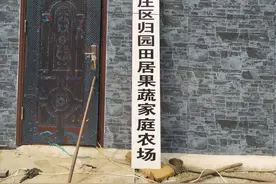 庄区归园田居果蔬家庭农场